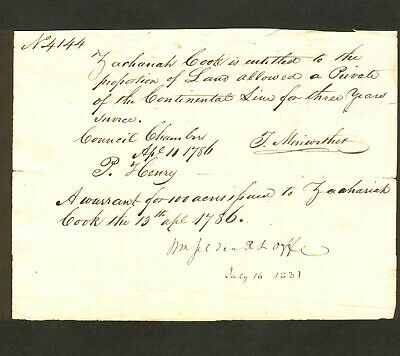 No 4144
Zachariah Cook is entitled to the
proportion of Land allowed a Private
of the Continental Line for three Years
Service.
Council Chamber
Apl 11 1786
T. Meriwether
P. Henry
A warrant for 100 acres issued to Zachariah
Cook the 13th apl 1786.
R L Offe
July 16 1831